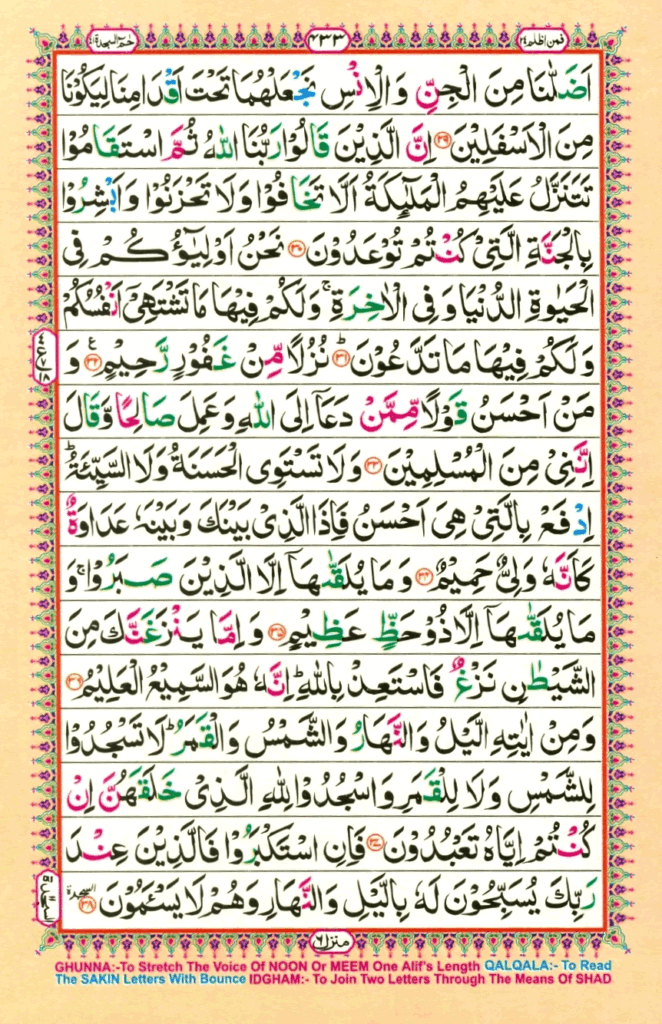 فمن اظلم ٢٤
٤٣٣
حٰمٓ السجدة ٤١
اَضَلّٰنَا مِنَ الْجِنِّ وَالْاِنْسِ نَجْعَلْهُمَا تَحْتَ اَقْدَامِنَا لِيَكُوْنَا
مِنَ الْاَسْفَلِيْنَ ﴿٢٩﴾ اِنَّ الَّذِيْنَ قَالُوْا رَبُّنَا اللّٰهُ ثُمَّ اسْتَقَامُوْا
تَتَنَزَّلُ عَلَيْهِمُ الْمَلٰٓئِكَةُ اَلَّا تَخَافُوْا وَلَا تَحْزَنُوْا وَاَبْشِرُوْا
بِالْجَنَّةِ الَّتِيْ كُنْتُمْ تُوْعَدُوْنَ ﴿٣٠﴾ نَحْنُ اَوْلِيٰٓؤُكُمْ فِى
الْحَيٰوةِ الدُّنْيَا وَفِى الْاٰخِرَةِ ۚ وَلَكُمْ فِيْهَا مَا تَشْتَهِىْٓ اَنْفُسُكُمْ
وَلَكُمْ فِيْهَا مَا تَدَّعُوْنَ ﴿٣١﴾ؕ نُزُلًا مِّنْ غَفُوْرٍ رَّحِيْمٍ ﴿٣٢﴾ع وَ
مَنْ اَحْسَنُ قَوْلًا مِّمَّنْ دَعَآ اِلَى اللّٰهِ وَعَمِلَ صَالِحًا وَّقَالَ
اِنَّنِىْ مِنَ الْمُسْلِمِيْنَ ﴿٣٣﴾ وَلَا تَسْتَوِى الْحَسَنَةُ وَلَا السَّيِّئَةُ ؕ
اِدْفَعْ بِالَّتِىْ هِىَ اَحْسَنُ فَاِذَا الَّذِىْ بَيْنَكَ وَبَيْنَهٗ عَدَاوَةٌ
كَاَنَّهٗ وَلِىٌّ حَمِيْمٌ ﴿٣٤﴾ وَمَا يُلَقّٰىهَآ اِلَّا الَّذِيْنَ صَبَرُوْا ۚ وَ
مَا يُلَقّٰىهَآ اِلَّا ذُوْ حَظٍّ عَظِيْمٍ ﴿٣٥﴾ وَاِمَّا يَنْزَغَنَّكَ مِنَ
الشَّيْطٰنِ نَزْغٌ فَاسْتَعِذْ بِاللّٰهِ ؕ اِنَّهٗ هُوَ السَّمِيْعُ الْعَلِيْمُ ﴿٣٦﴾
وَمِنْ اٰيٰتِهِ الَّيْلُ وَالنَّهَارُ وَالشَّمْسُ وَالْقَمَرُ ؕ لَا تَسْجُدُوْا
لِلشَّمْسِ وَلَا لِلْقَمَرِ وَاسْجُدُوْا لِلّٰهِ الَّذِىْ خَلَقَهُنَّ اِنْ
كُنْتُمْ اِيَّاهُ تَعْبُدُوْنَ ﴿٣٧﴾ فَاِنِ اسْتَكْبَرُوْا فَالَّذِيْنَ عِنْدَ
رَبِّكَ يُسَبِّحُوْنَ لَهٗ بِالَّيْلِ وَالنَّهَارِ وَهُمْ لَا يَسْئَمُوْنَ ﴿٣٨﴾ السجدة
السجدة
منزل ٦
GHUNNA:-To Stretch The Voice Of NOON Or MEEM One Alif's Length QALQALA:- To Read
The SAKIN Letters With Bounce IDGHAM:- To Join Two Letters Through The Means Of SHAD